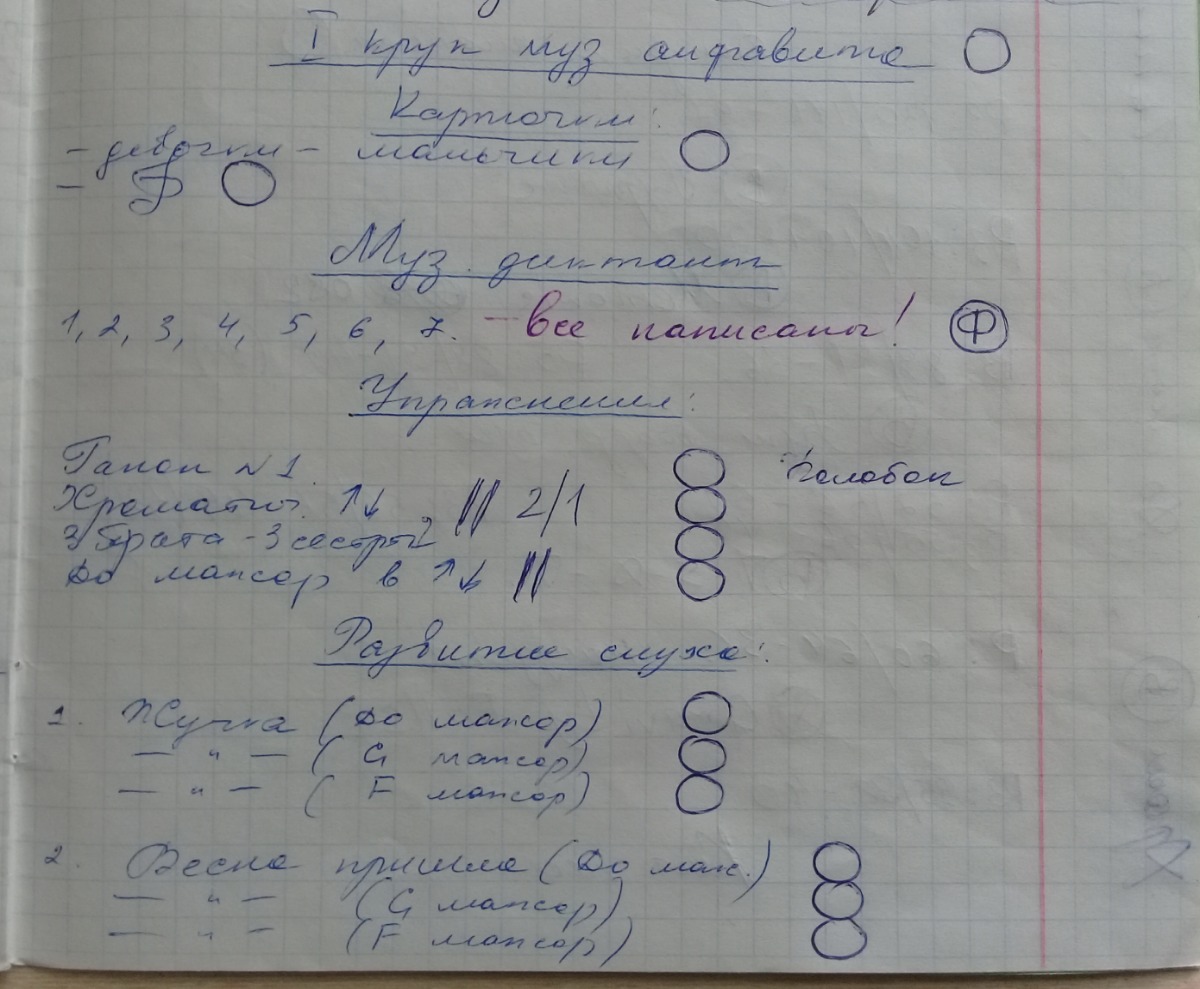 I круг муз алфавита
Карточки:
- девочки - мальчики
-
Муз. диктант
1, 2, 3, 4, 5, 6, 7. - все написаны! Ф
Упражнения:
Ганон №1. Колобок
Хроматич. ↑↓ || 2/1
3 брата - 3 сестры
До мажор в ↑↓ ||
Развитие слуха:
1. Жучка (До мажор)
— " — (G мажор)
— " — (F мажор)
2. Весна пришла (До маж.)
— " — (G мажор)
— " — (F мажор)